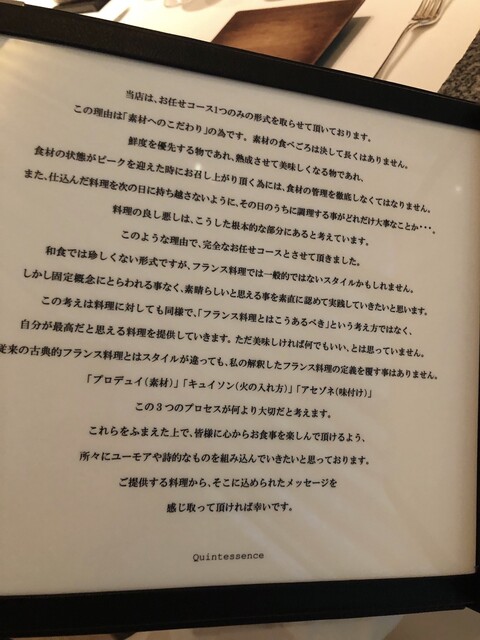 当店は、お任せコース1つのみの形式を取らせて頂いております。
この理由は「素材へのこだわり」の為です。素材の食べごろは決して長くはありません。
鮮度を優先する物であれ、熟成させて美味しくなる物であれ、
食材の状態がピークを迎えた時にお召し上がり頂く為には、食材の管理を徹底しなくてはなりません。
また、仕込んだ料理を次の日に持ち越さないように、その日のうちに調理する事がどれだけ大事なことか・・・。
料理の良し悪しは、こうした根本的な部分にあると考えています。
このような理由で、完全なお任せコースとさせて頂きました。
和食では珍しくない形式ですが、フランス料理では一般的ではないスタイルかもしれません。
しかし固定概念にとらわれる事なく、素晴らしいと思える事を素直に認めて実践していきたいと思います。
この考えは料理に対しても同様で、「フランス料理とはこうあるべき」という考え方ではなく、
自分が最高だと思える料理を提供していきます。ただ美味しければ何でもいい、とは思っていません。
従来の古典的フランス料理とはスタイルが違っても、私の解釈したフランス料理の定義を覆す事はありません。
「プロデュイ(素材)」「キュイソン(火の入れ方)」「アセゾネ(味付け)」
この3つのプロセスが何より大切だと考えます。
これらをふまえた上で、皆様に心からお食事を楽しんで頂けるよう、
所々にユーモアや詩的なものを組み込んでいきたいと思っております。
ご提供する料理から、そこに込められたメッセージを
感じ取って頂ければ幸いです。
Quintessence